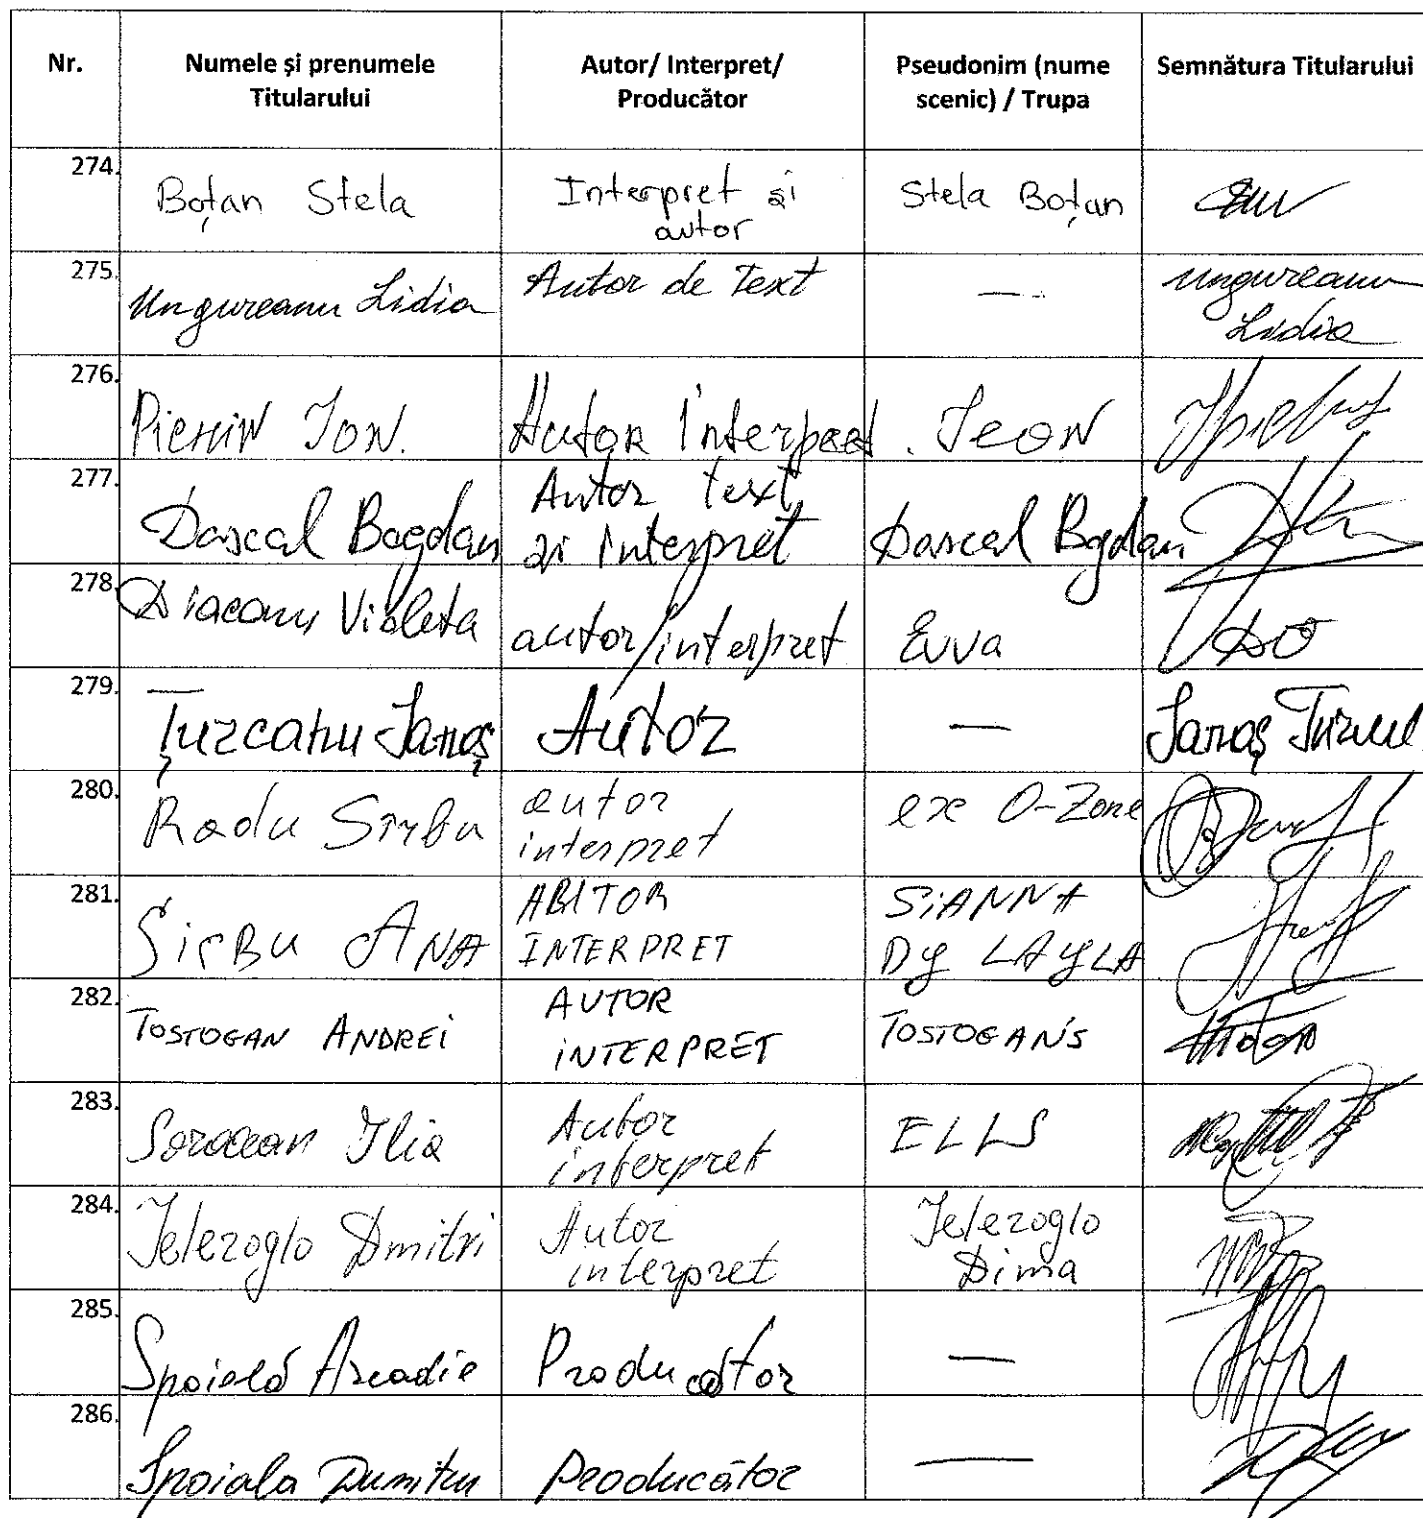 Nr.
Numele și prenumele
Titularului
Autor/ Interpret/
Producător
Pseudonim (nume
scenic) / Trupa
Semnătura Titularului
274.
Boțan Stela
Interpret și
autor
Stela Boțan
275.
Ungureanu Lidia
Autor de Text
—
Ungureanu
Lidia
276.
Ion.
Autor Interpret.
Jeon
277.
Dascal Bogdan
Autor text
și interpret
Dascal Bogdan
278.
Diaconu Violeta
autor/interpret
Evva
279.
Țurcanu Ianoș
Autor
—
Ianoș
280.
Radu Sîrbu
autor
interpret
ex O-Zone
281.
Sîrbu ANA
AUTOR
INTERPRET
SiANNA
DJ LAYLA
282.
TOSTOGAN ANDREi
AUTOR
iNTERPRET
TOSTOGAN'S
283.
Ilia
Autor
interpret
ELLS
284.
Jelezoglo Dmitri
Autor
interpret
Jelezoglo
Dima
285.
Spoială Arcadie
Producător
—
286.
Spoiala Dumitru
Producător
—